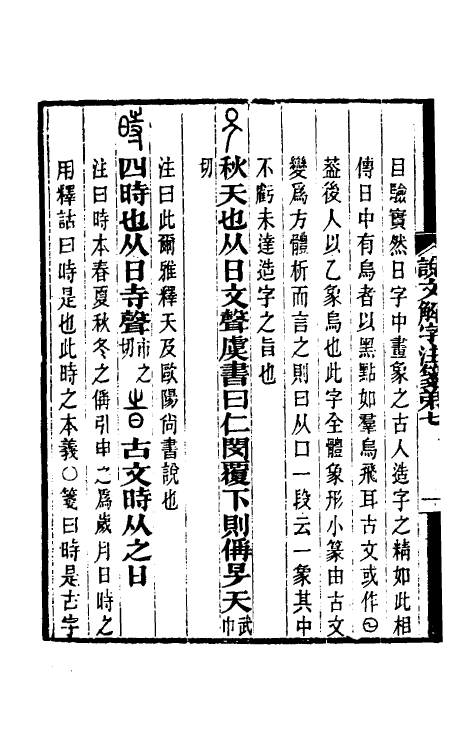 說文解字注箋弟七
一
目驗實然日字中畫象之古人造字之精如此相
傳日中有烏者以黑點如羣烏飛耳古文或作
葢後人以乙象烏也此字全體象形小篆由古文
變爲方體析而言之則曰从口一段云一象其中
不虧未達造字之旨也
秋天也从日文聲虞書曰仁閔覆下則偁旻天武巾
切
注曰此爾雅釋天及歐陽尚書說也
四時也从日寺聲市之切 古文時从之日
注曰時本春夏秋冬之偁引申之爲歲月日時之
用釋詁曰時是也此時之本義○箋曰時是古字